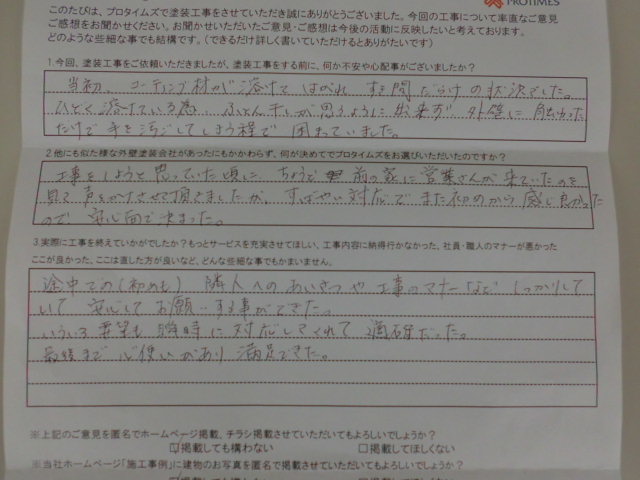 PROTIMES
このたびは、プロタイムズで塗装工事をさせていただき誠にありがとうございました。今回の工事について率直なご意見
ご感想をお聞かせください。お聞かせいただいたご意見・ご感想は今後の活動に反映したいと考えております。
どのような些細な事でも結構です。(できるだけ詳しく書いていただけるとありがたいです)
1.今回、塗装工事をご依頼いただきましたが、塗装工事をする前に、何か不安や心配事がございましたか?
当初、コーティング材が溶けて はがれ すき間だらけの状況でした。
ひどく溶けている為、ふとん干しが思うように出来ず 外壁に 触わった
だけで手を汚ごしてしまう程で 困まっていました。
2.他にも似た様な外壁塗装会社があったにもかかわらず、何が決めてでプロタイムズをお選びいただいたのですか?
工事をしようと思っていた頃に、ちょうど 前の家に営業さんが来ていたのを
見て 声をかけさせて頂きましたが、すばやい対応で また初めから 感じ良かった
ので 安心面で決まった。
3.実際に工事を終えていかがでしたか?もっとサービを充実させてほしい、工事内容に納得行かなかった、社員・職人のマナーが悪かった
ここが良かった、ここは直した方が良いなど、どんな些細な事でもかまいません。
途中での(初めも) 隣人へのあいさつや工事のマナーなど しっかりして
いて 安心して お願いする事ができた。
いろいろ要望も 瞬時に対応してくれて 適確だった。
最後まで心使いがあり 満足できた。
※上記のご意見を匿名でホームページ掲載、チラシ掲載させていただいてもよろしいでしょうか?
□掲載しても構わない □掲載してほしくない
※当社ホームページ「施工事例」に建物のお写真を匿名で掲載させていただいてもよろしいでしょうか?